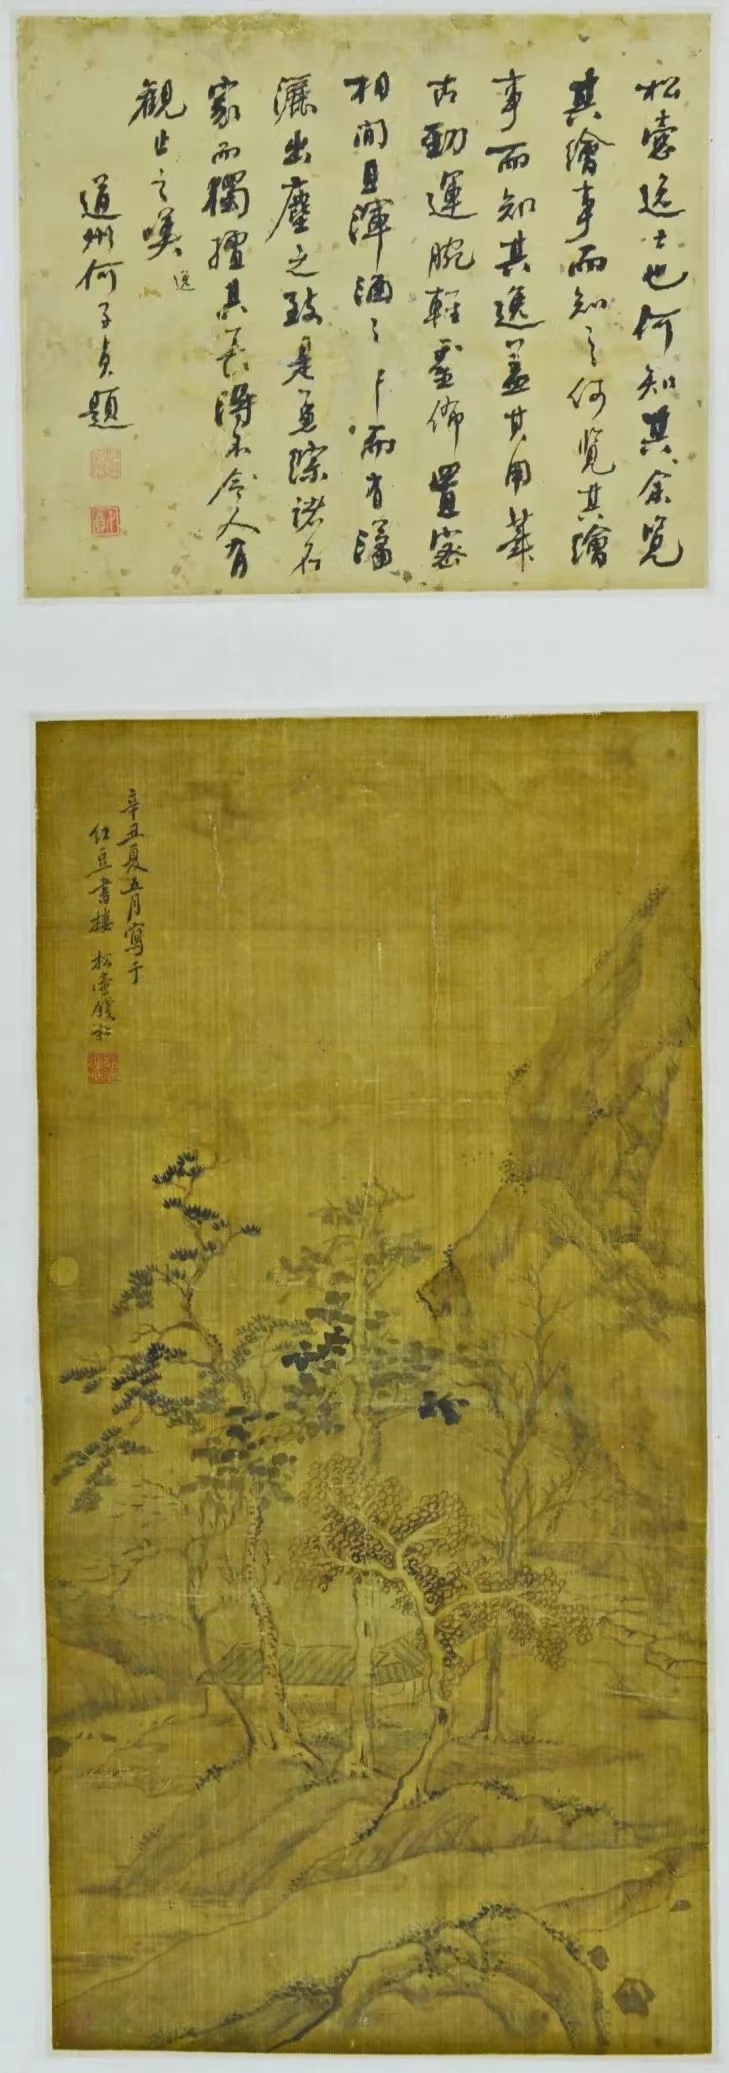 松壺逸士也何知其余览
其繪事而知之何览其繪
事而知其逸盖其用筆
古勁運腕輕靈佈置密
相間且渾洒之下而有瀟
灑出塵之致是兼综諸名
家而獨擅其長得不令人有
觀止之嘆
逸
道州何子貞題
辛丑夏五月寫于
紅豆書樓 松壺錢